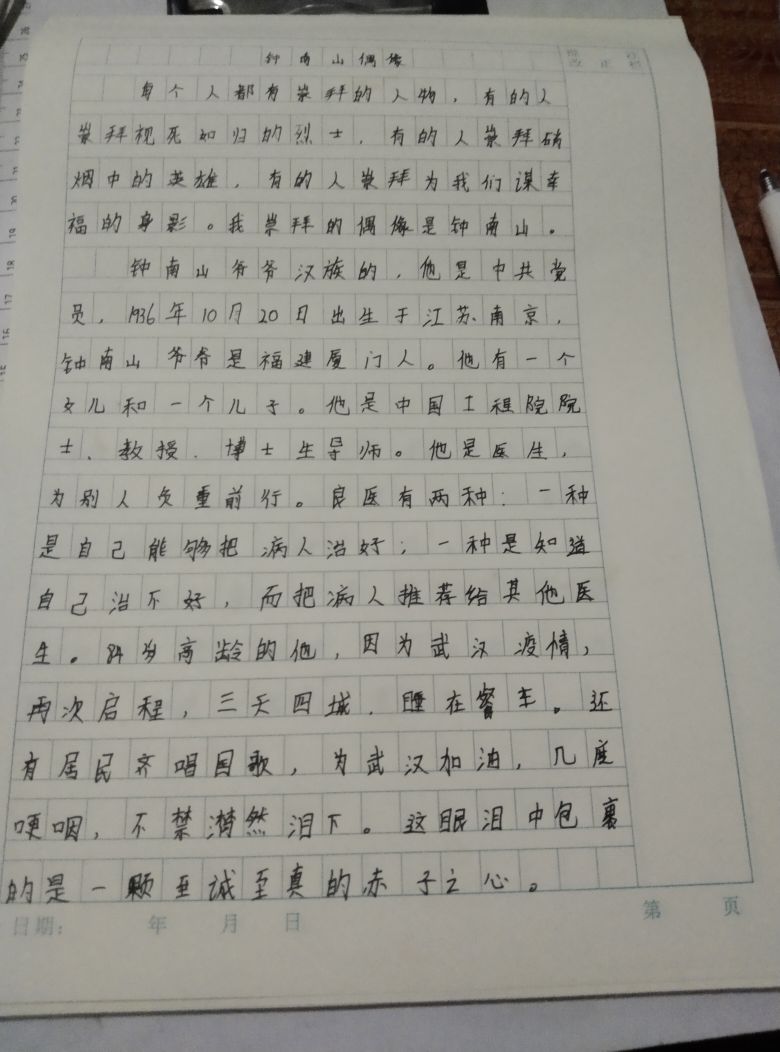 钟南山偶像
每个人都有崇拜的人物，有的人
崇拜视死如归的烈士，有的人崇拜硝
烟中的英雄，有的人崇拜为我们谋幸
福的身影。我崇拜的偶像是钟南山。
钟南山爷爷汉族的，他是中共党
员，1936年10月20日出生于江苏南京，
钟南山爷爷是福建厦门人。他有一个
女儿和一个儿子。他是中国工程院院
士、教授、博士生导师。他是医生，
为别人负重前行。良医有两种：一种
是自己能够把病人治好；一种是知道
自己治不好，而把病人推荐给其他医
生。84岁高龄的他，因为武汉疫情，
再次启程，三天四城，睡在餐车。还
有居民齐唱国歌，为武汉加油，几度
哽咽，不禁潸然泪下。这眼泪中包裹
的是一颗至诚至真的赤子之心。
日期： 年 月 日 第 页